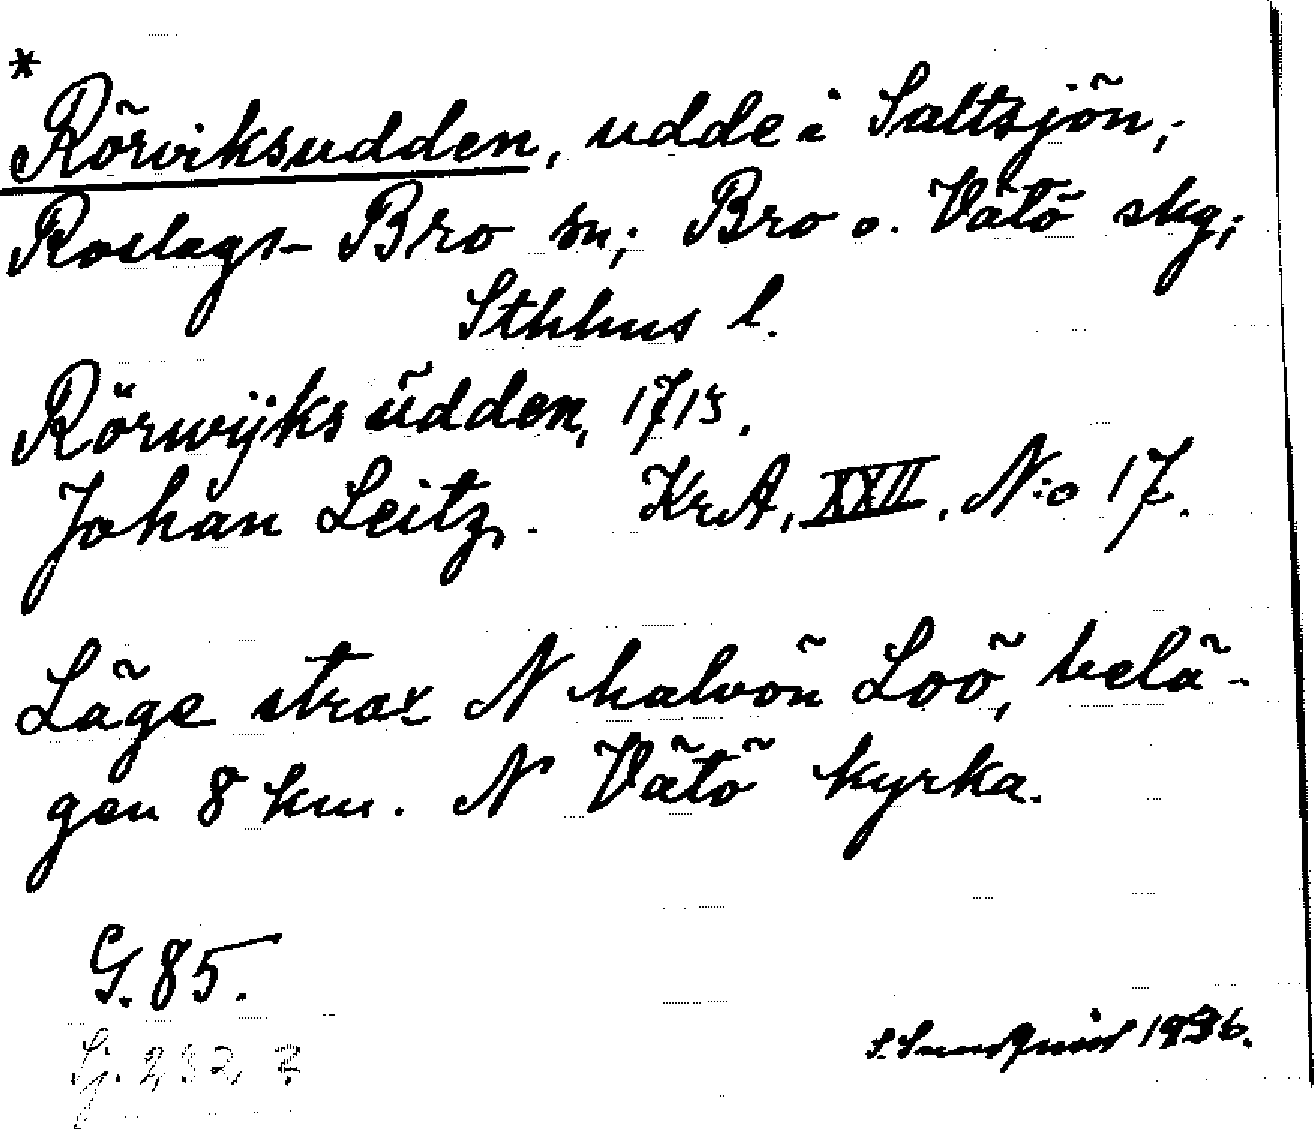 *
Rörviksudden, udde i Saltsjön,
Roslags-Bro sn; Bro o. Vätö skg;
Sthlms l.
Rörwijks üdden, 1715.
Johan Leitz. KrA, XXII. N:o 17.
Läge strax N halvön Loö, belä-
gen 8 km. N Vätö kyrka.
G. 85.
Sj. 232 2
S. Sundquist 1936.